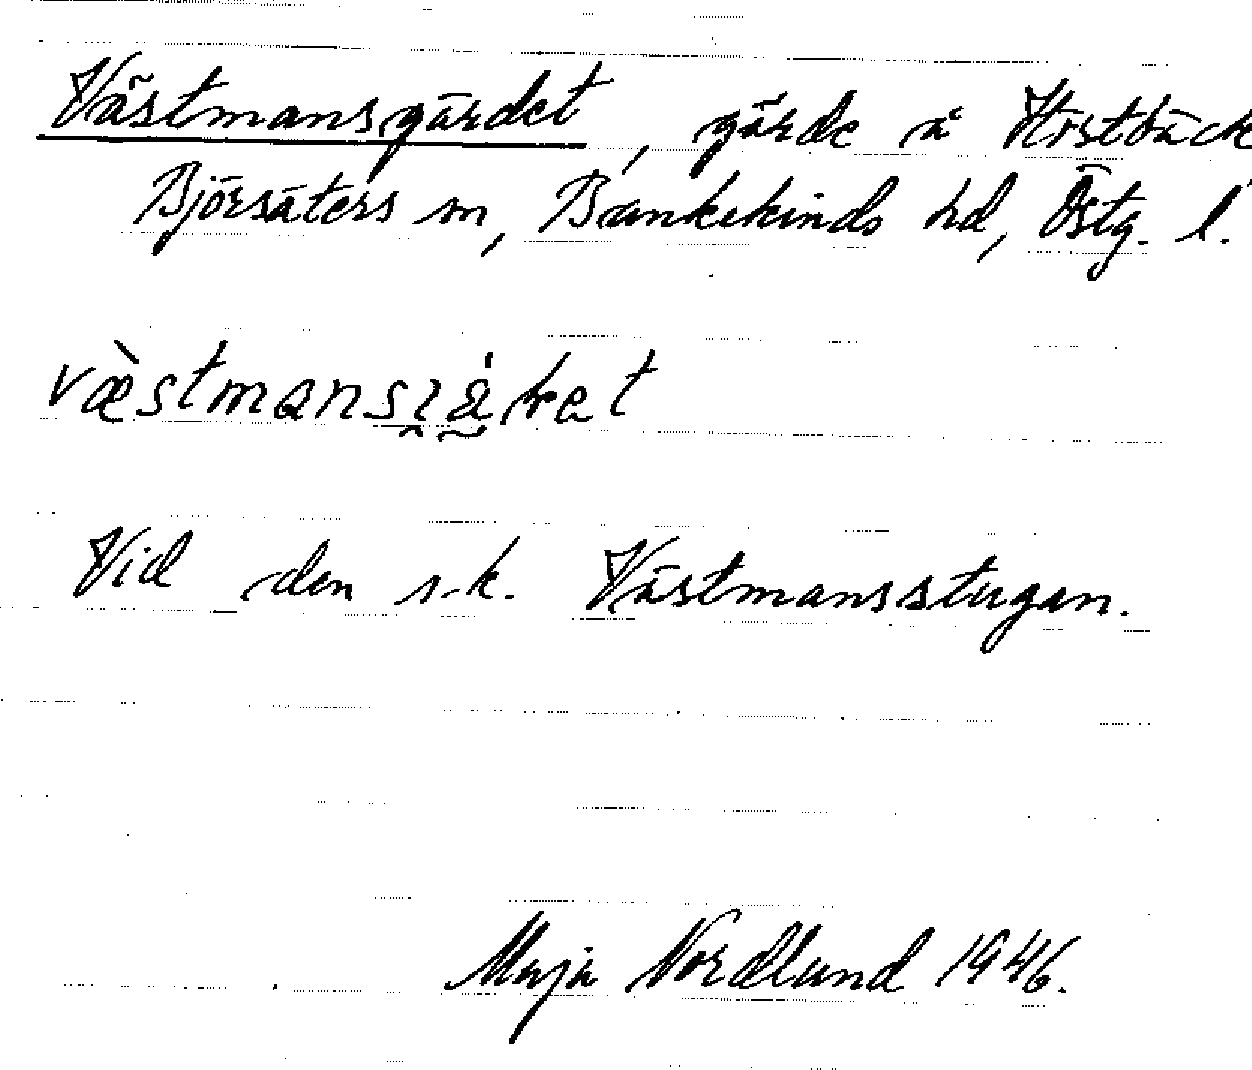 Västmansgärdet, gärde å Hvistbäck
Björsäters sn, Bankekinds hd, Östg. l.
Vid den s.k. Västmansstugan.
Maja Nordlund 1946.